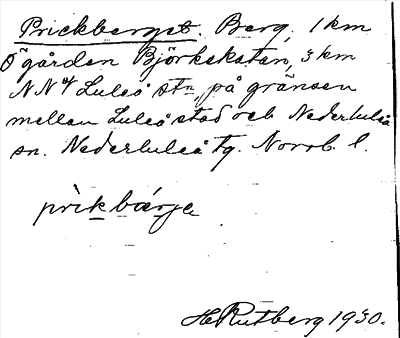 Prickberget. Berg, 1 km
Ö gården Björkskatan, 3 km
NNV Luleå stn, på gränsen
mellan Luleå stad och Nederluleå
sn. Nederluleå tg. Norrb. l.
prìkbár̥je
H Rutberg 1930.